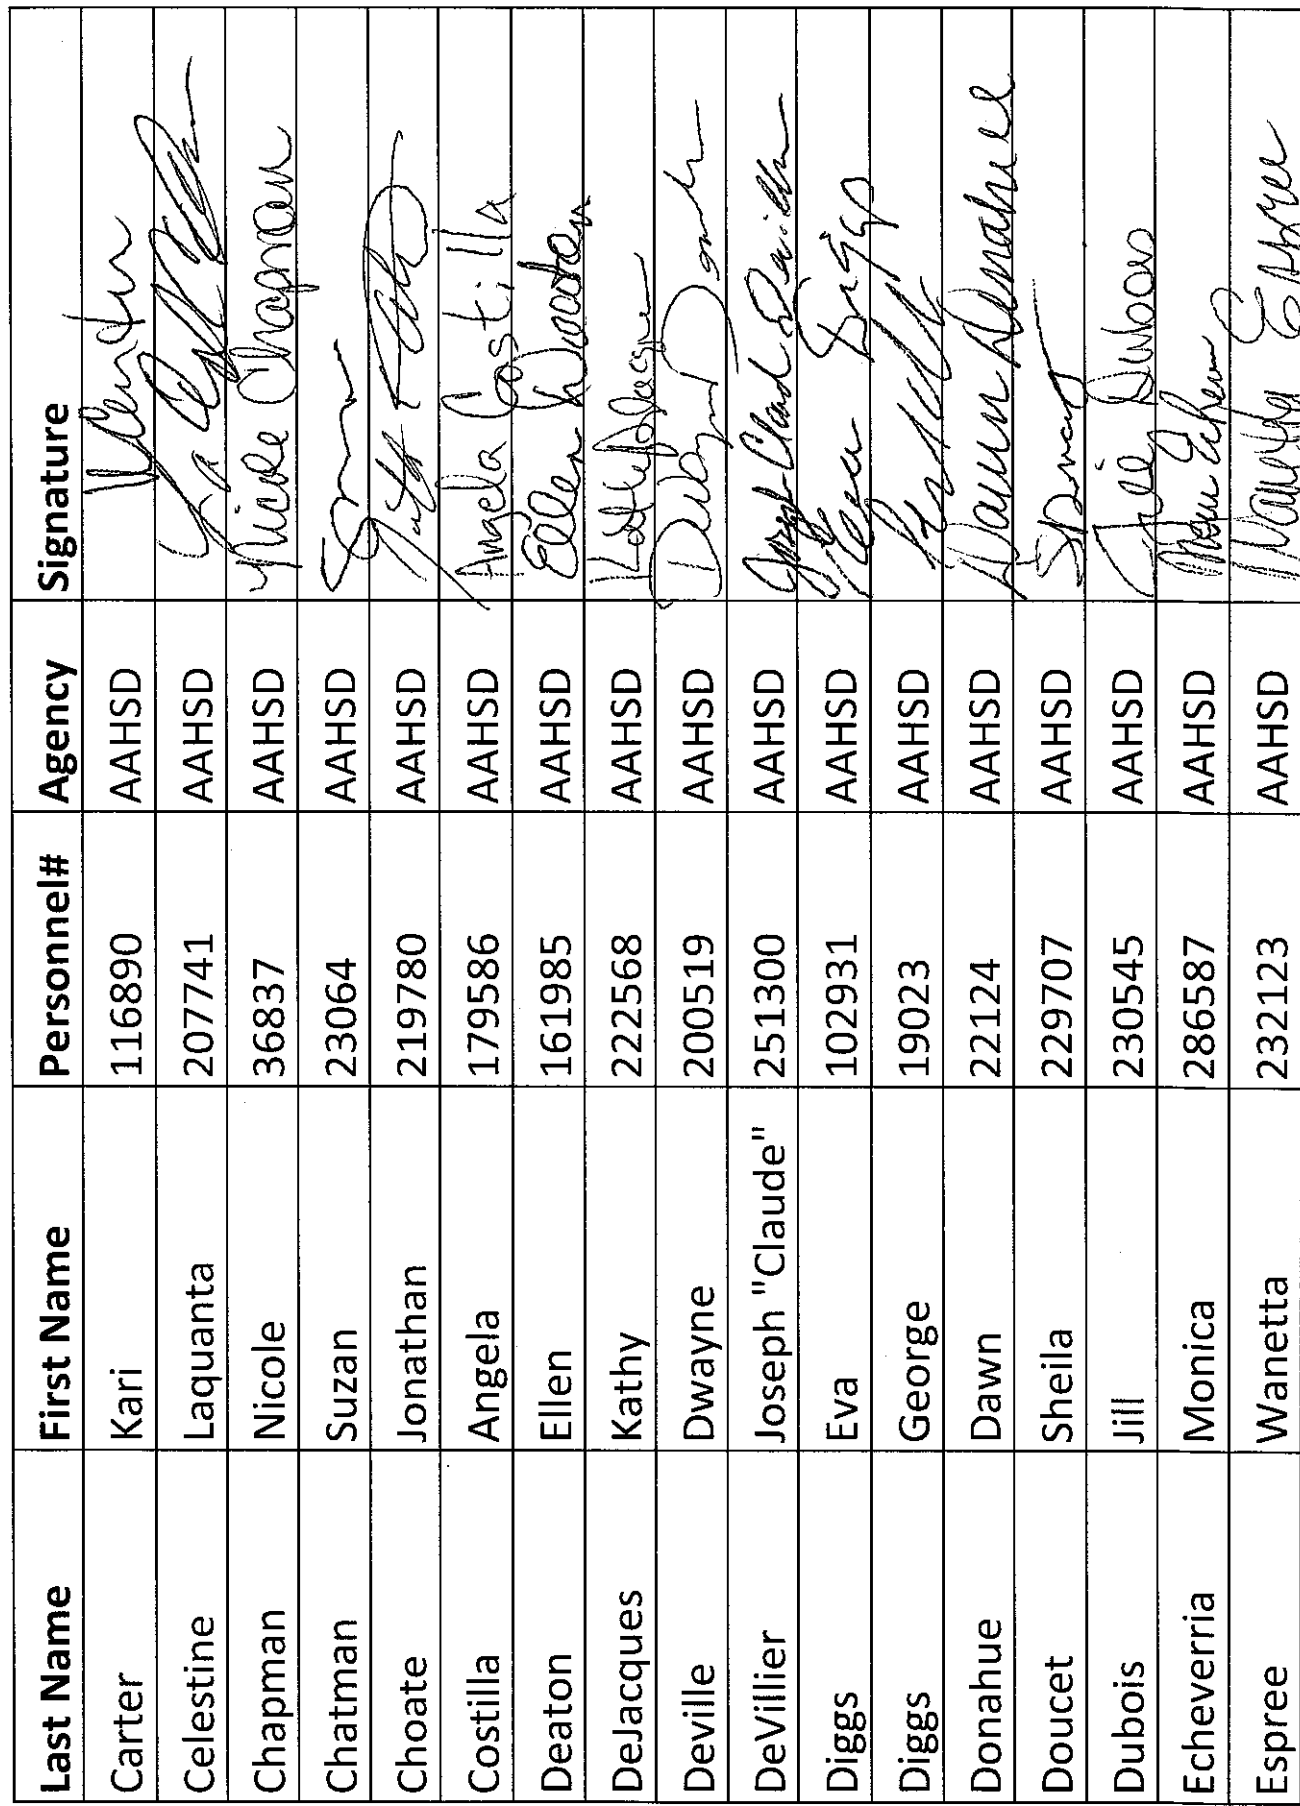 Last Name First Name Personnel# Agency Signature
Carter Kari 116890 AAHSD
Celestine Laquanta 207741 AAHSD
Chapman Nicole 36837 AAHSD Nicole Chapman
Chatman Suzan 23064 AAHSD
Choate Jonathan 219780 AAHSD
Costilla Angela 179586 AAHSD Angela Costilla
Deaton Ellen 161985 AAHSD Ellen Deaton
DeJacques Kathy 222568 AAHSD
Deville Dwayne 200519 AAHSD
DeVillier Joseph "Claude" 251300 AAHSD
Diggs Eva 102931 AAHSD Eva Diggs
Diggs George 19023 AAHSD
Donahue Dawn 22124 AAHSD Dawn Donahue
Doucet Sheila 229707 AAHSD
Dubois Jill 230545 AAHSD Dubois
Echeverria Monica 286587 AAHSD
Espree Wanetta 232123 AAHSD Wanetta Espree